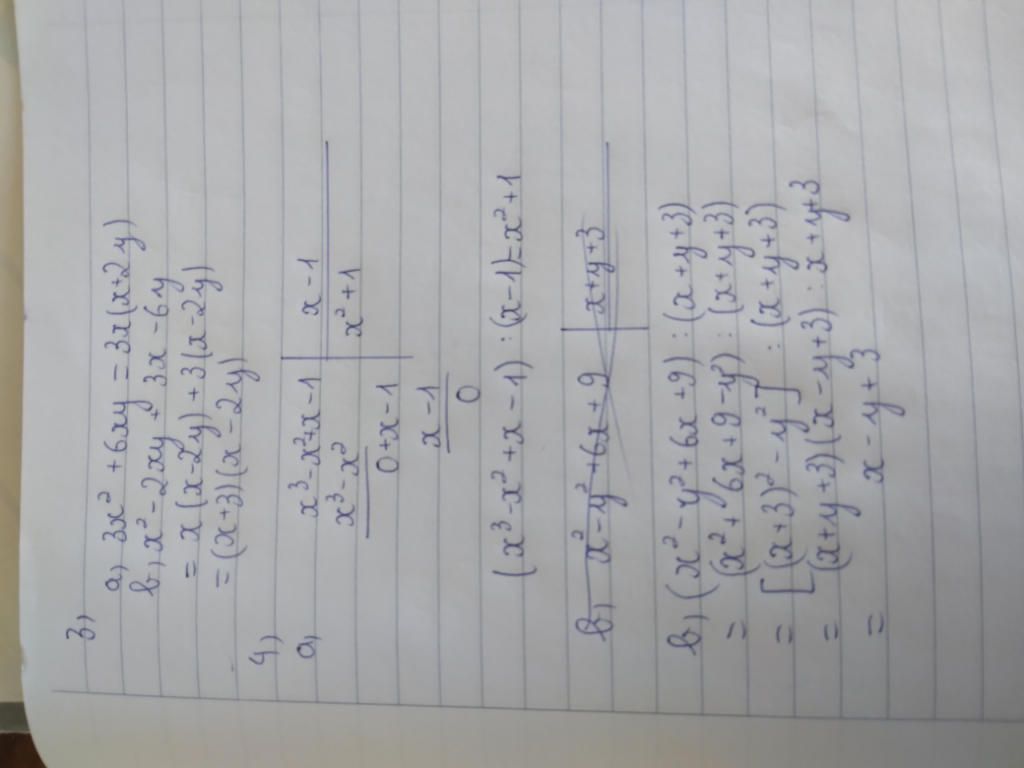 3)
a) 3x² + 6xy = 3x(x+2y)
b) x² - 2xy + 3x - 6y
= x(x-2y) + 3(x-2y)
= (x+3)(x-2y)
4)
a) x³-x²+x-1 | x-1
x³-x² | x²+1
0+x-1
x-1
0
(x³-x²+x-1) : (x-1)=x²+1
b) x²-y²+6x+9 | x+y+3
b) (x²-y²+6x+9) : (x+y+3)
= (x²+6x+9-y²) : (x+y+3)
= [(x+3)²-y²] : (x+y+3)
= (x+y+3)(x-y+3) : x+y+3
= x-y+3